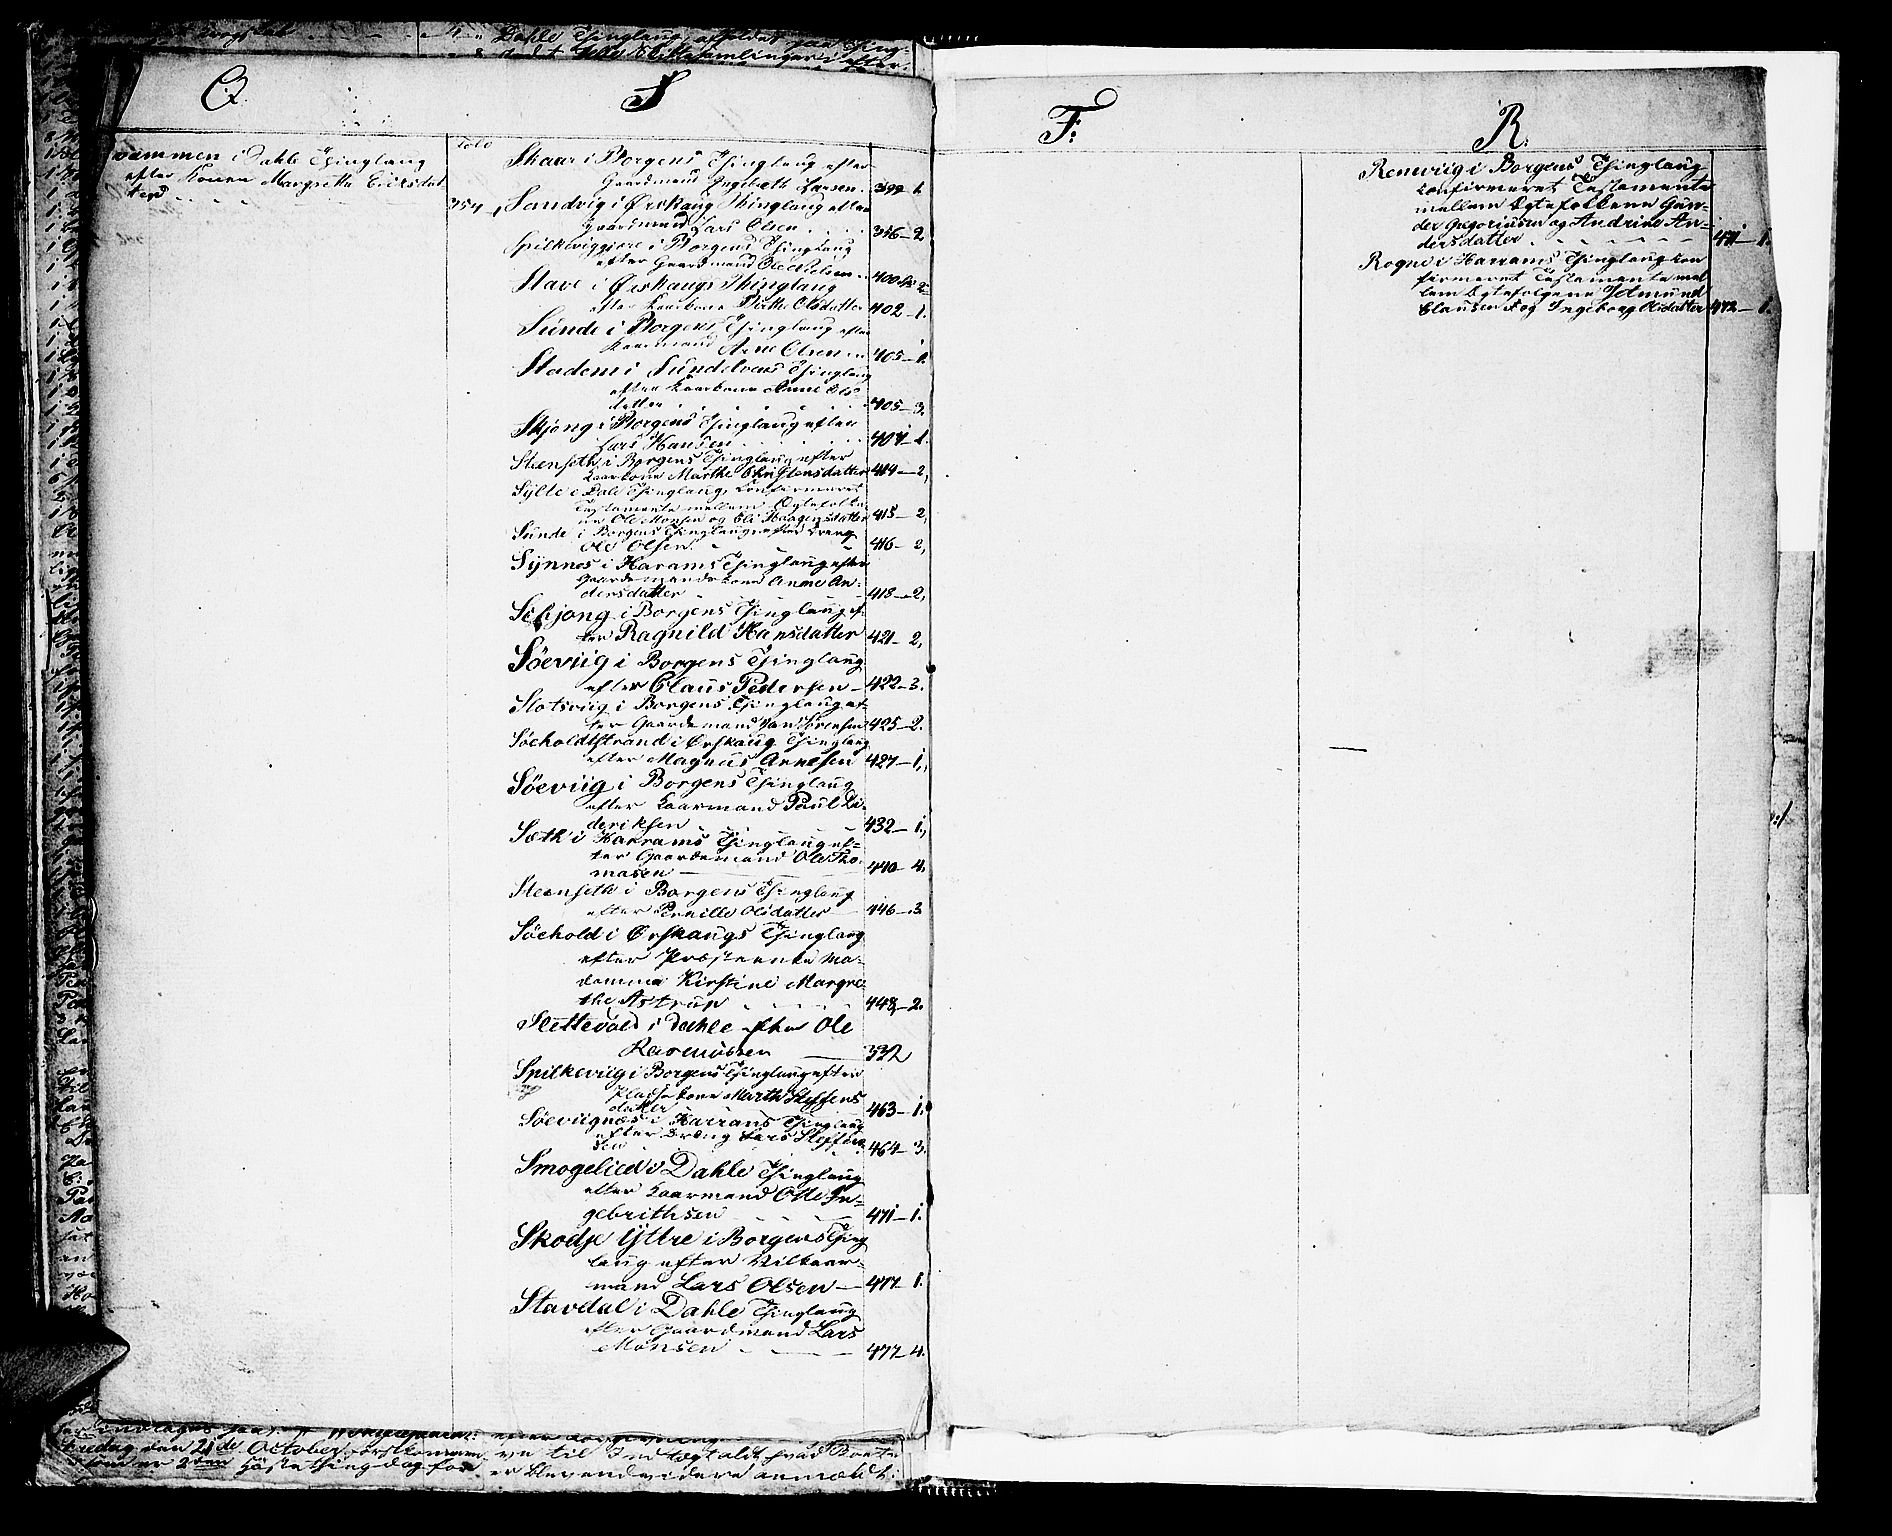 Q.
Qvammen i Dahle Thinglaug
efter Konen Margrethe Eriksdat
ter 354 - 1
S
Folio
Skaar i Borgens Thinglaug efter
Gaardmand Ingebreth Larsen. 399 - 1
Sandvig i Ørskaug Thinglaug efter
Gaardmand Lars Olsen 356 - 2
Spilkeviggjære i Borgens Thinglaug
efter Gaardmand Ole Nielsen 400
Stave i Ørskaugs Thinglaug
efter Kaarkone Olsdatter 402 - 1.
Sunde i Borgens Thinglaug efter
Kaarmand Arne Olsen 405 - 1.
Stadem i Sundelvens Thinglaug
efter Kaarkone Anne Ols-
datter 405 - 3.
Skjong i Borgens Thinglaug efter
Lars Hansen 407 - 1.
Steenseth i Borgens Thinglaug efter
Kaarkone Marthe Christensdatter 414 - 2,
Sylte i Dale Thinglaug, konfirmeret
Testamente mellem Egtefolke
ne Ole Monsen og Eli Haagensdatter 415 - 2,
Sunde i Borgens Thinglaug efter Dreng
Ole Olsen. 416 - 2,
Synnes i Harams Thinglaug efter
Gaardemandskone Anne An-
dersdatter 418 - 2,
Schjong i Borgens Thinglaug ef-
ter Ragnild Hansdatter 421 - 2,
Söeviig i Borgens Thinglaug
efter Claus Pedersen - 422 - 3.
Slotsviig i Borgens Thinglaug ef-
ter Gaardemand Sörensen 425 - 2.
Söeholdtstrand i Ørskaug Thinglaug
efter Magnus Arnesen 427 - 1,
Söeviig i Borgens Thinglaug
efter Kaarmand Paul Di-
deriksen 432 - 1,
Sæth i Harrams Thinglaug ef-
ter Gaardemand Ole Tho-
masen 440 - 4.
Steenseth i Borgens Thinglaug
efter Pernille Olsdatter 446 - 3
Söehold i Ørskaugs Thinglaug
efter Præsteenke Ma-
damme Kirstine Margre-
the Astrup 448 - 2.
Slettevold i Dahle efter Ole
Rasmussen 332
Spilkeviig i Borgens Thinglaug efter
Pladskone Marth Steffens
datter 463 - 1.
Söeviignæs i Harrams Thinglaug
efter Dreng Lars Steffen
sen 464 - 3.
Smogelied i Dahle Thinglaug
efter Kaarmand Otte In-
gebrithsen 471 - 1.
Skodje Yttre i Borgens Thing
laug efter Vilkaar-
mand Lars Olsen - 477 - 1.
Stavdal i Dahle Thinglaug
efter Gaardmand Lars
Monsen 477 - 4.
F:
R.
Reneviig i Borgens Thinglaug
konfirmeret Testamente
mellem Egtefolkene Gun-
der Gregoriusen og Andrine An-
dersdatter 471 - 1.
Rogne i Harrams Thinglaug kon
firmeret Testamente mel
lem Egtefolgene
Clausen og Ingeborg Olsdatter 472 - 1.